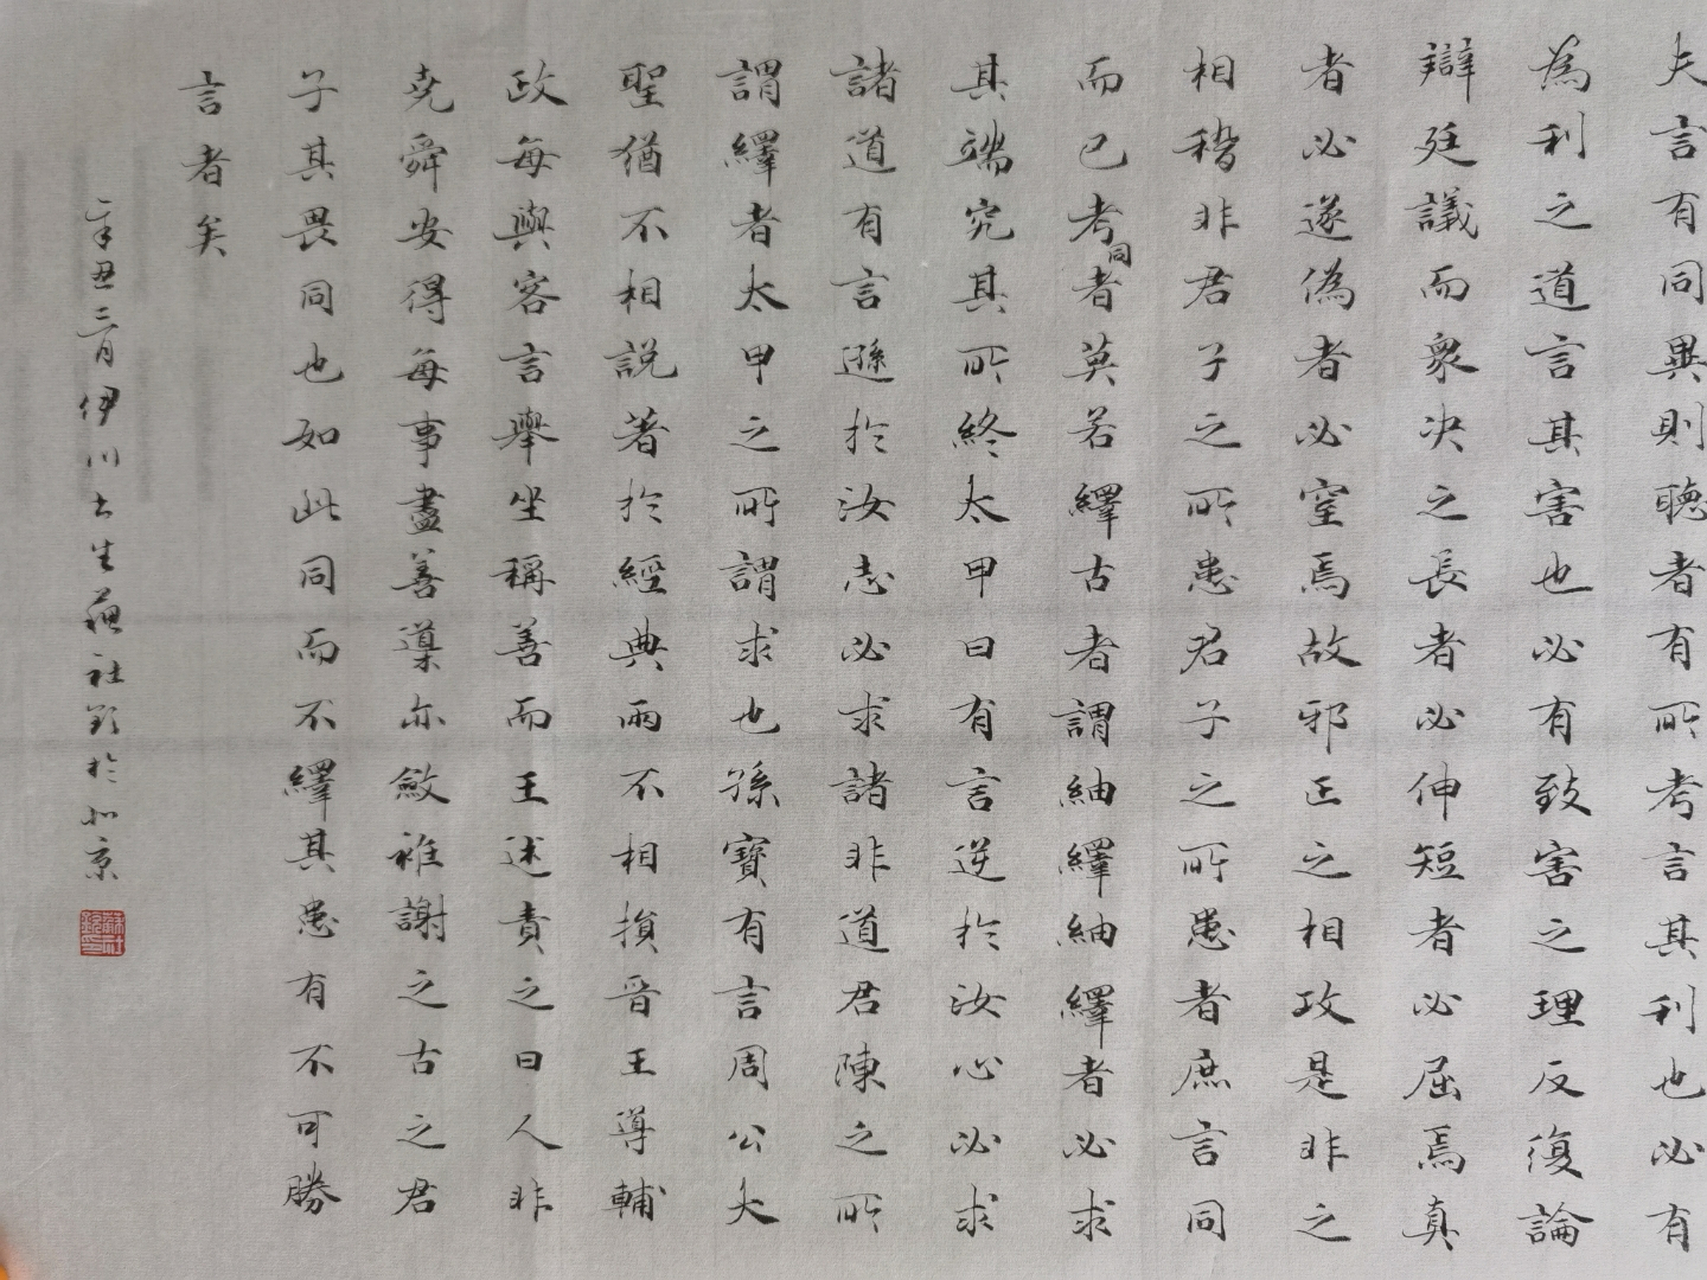 夫言有同異則聴者有所考言其利也必有
為利之道言其害也必有致害之理反復論
辯廷議而衆决之長者必伸短者必屈焉真
者必遂偽者必窒焉故邪正之相攻是非之
相稽非君子之所患君子之所患者庶言同
而已考同者莫若繹古者謂紬繹紬繹者必求
其端究其所終太甲曰有言逆於汝心必求
諸道有言遜於汝志必求諸非道君陳之所
謂繹者太甲之所謂求也孫寶有言周公大
聖猶不相説著於經典兩不相損晉王導輔
政每與客言舉坐稱善而王述責之曰人非
尭舜安得每事盡善導亦斂袵謝之古之君
子其畏同也如此同而不繹其患有不可勝
言者矣
辛丑三月伊川士生蘓社欽於北京
蘇社欽印